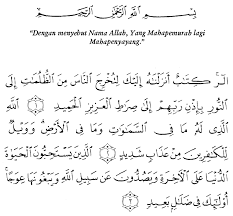 بِسْمِ اللَّهِ الرَّحْمَٰنِ الرَّحِيمِ
“Dengan menyebut Nama Allah, Yang Mahapemurah lagi
Mahapenyayang.”
الٓر ۚ كِتَٰبٌ أَنزَلْنَٰهُ إِلَيْكَ لِتُخْرِجَ النَّاسَ مِنَ الظُّلُمَٰتِ إِلَى
النُّورِ بِإِذْنِ رَبِّهِمْ إِلَىٰ صِرَٰطِ الْعَزِيزِ الْحَمِيدِ ۝١ اللَّهِ
الَّذِى لَهُۥ مَا فِى السَّمَٰوَٰتِ وَمَا فِى الْأَرْضِ ۗ وَوَيْلٌ
لِّلْكَٰفِرِينَ مِنْ عَذَابٍ شَدِيدٍ ۝٢ الَّذِينَ يَسْتَحِبُّونَ الْحَيَوٰةَ
الدُّنْيَا عَلَى الْءَاخِرَةِ وَيَصُدُّونَ عَن سَبِيلِ اللَّهِ وَيَبْغُونَهَا عِوَجًا ۚ
أُو۟لَٰٓئِكَ فِى ضَلَٰلٍۭ بَعِيدٍ ۝٣